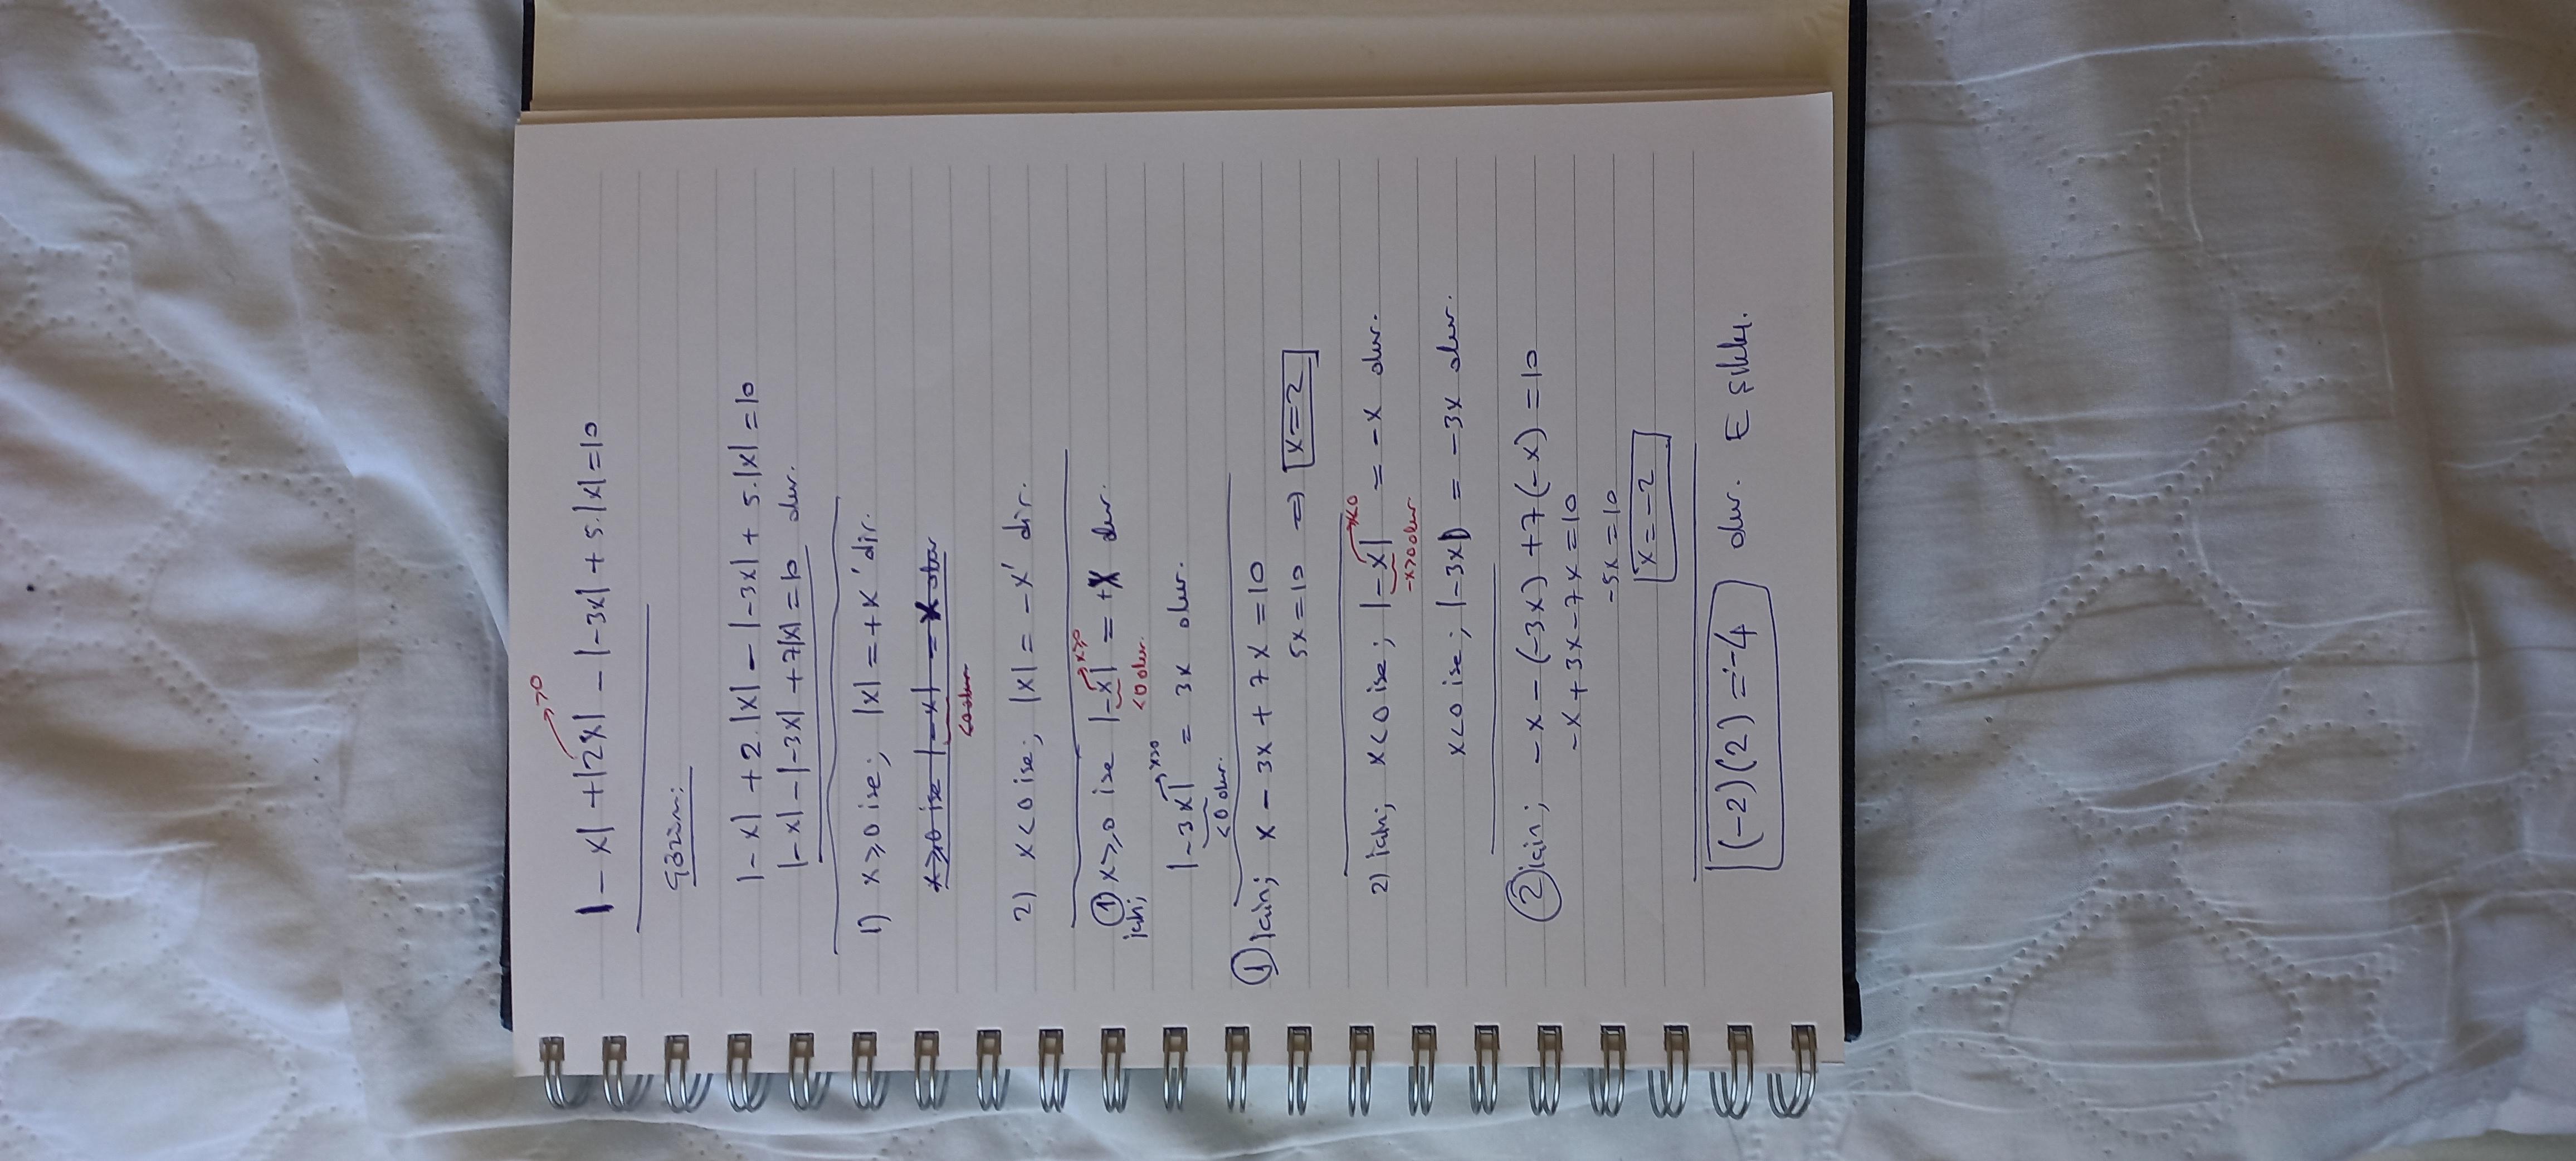 |-x| + |2x| - |-3x| + 5.|x| = 10
→ >0
Çözüm;
|-x| + 2.|x| - |-3x| + 5.|x| = 10
|-x| - |-3x| + 7|x| = 10 olur.
1) x≥0 ise; |x| = +x'dir.
x≥0 ise |-x| = x olur
<0 olur
2) x<0 ise; |x| = -x' dir.
① x≥0 ise |-x| = +x olur.
için;
→ x≥0
<0 olur.
|-3x| = 3x olur.
→ x≥0
<0 olur.
① için; x - 3x + 7x = 10
5x = 10 ⇒ x = 2
2) için; x<0 ise; |-x| = -x olur.
→ x<0
-x>0 olur
x<0 ise; |-3x| = -3x olur.
② için; -x - (-3x) + 7(-x) = 10
-x + 3x - 7x = 10
-5x = 10
x = -2
(-2)(2) = -4 olur. E şıkkı.